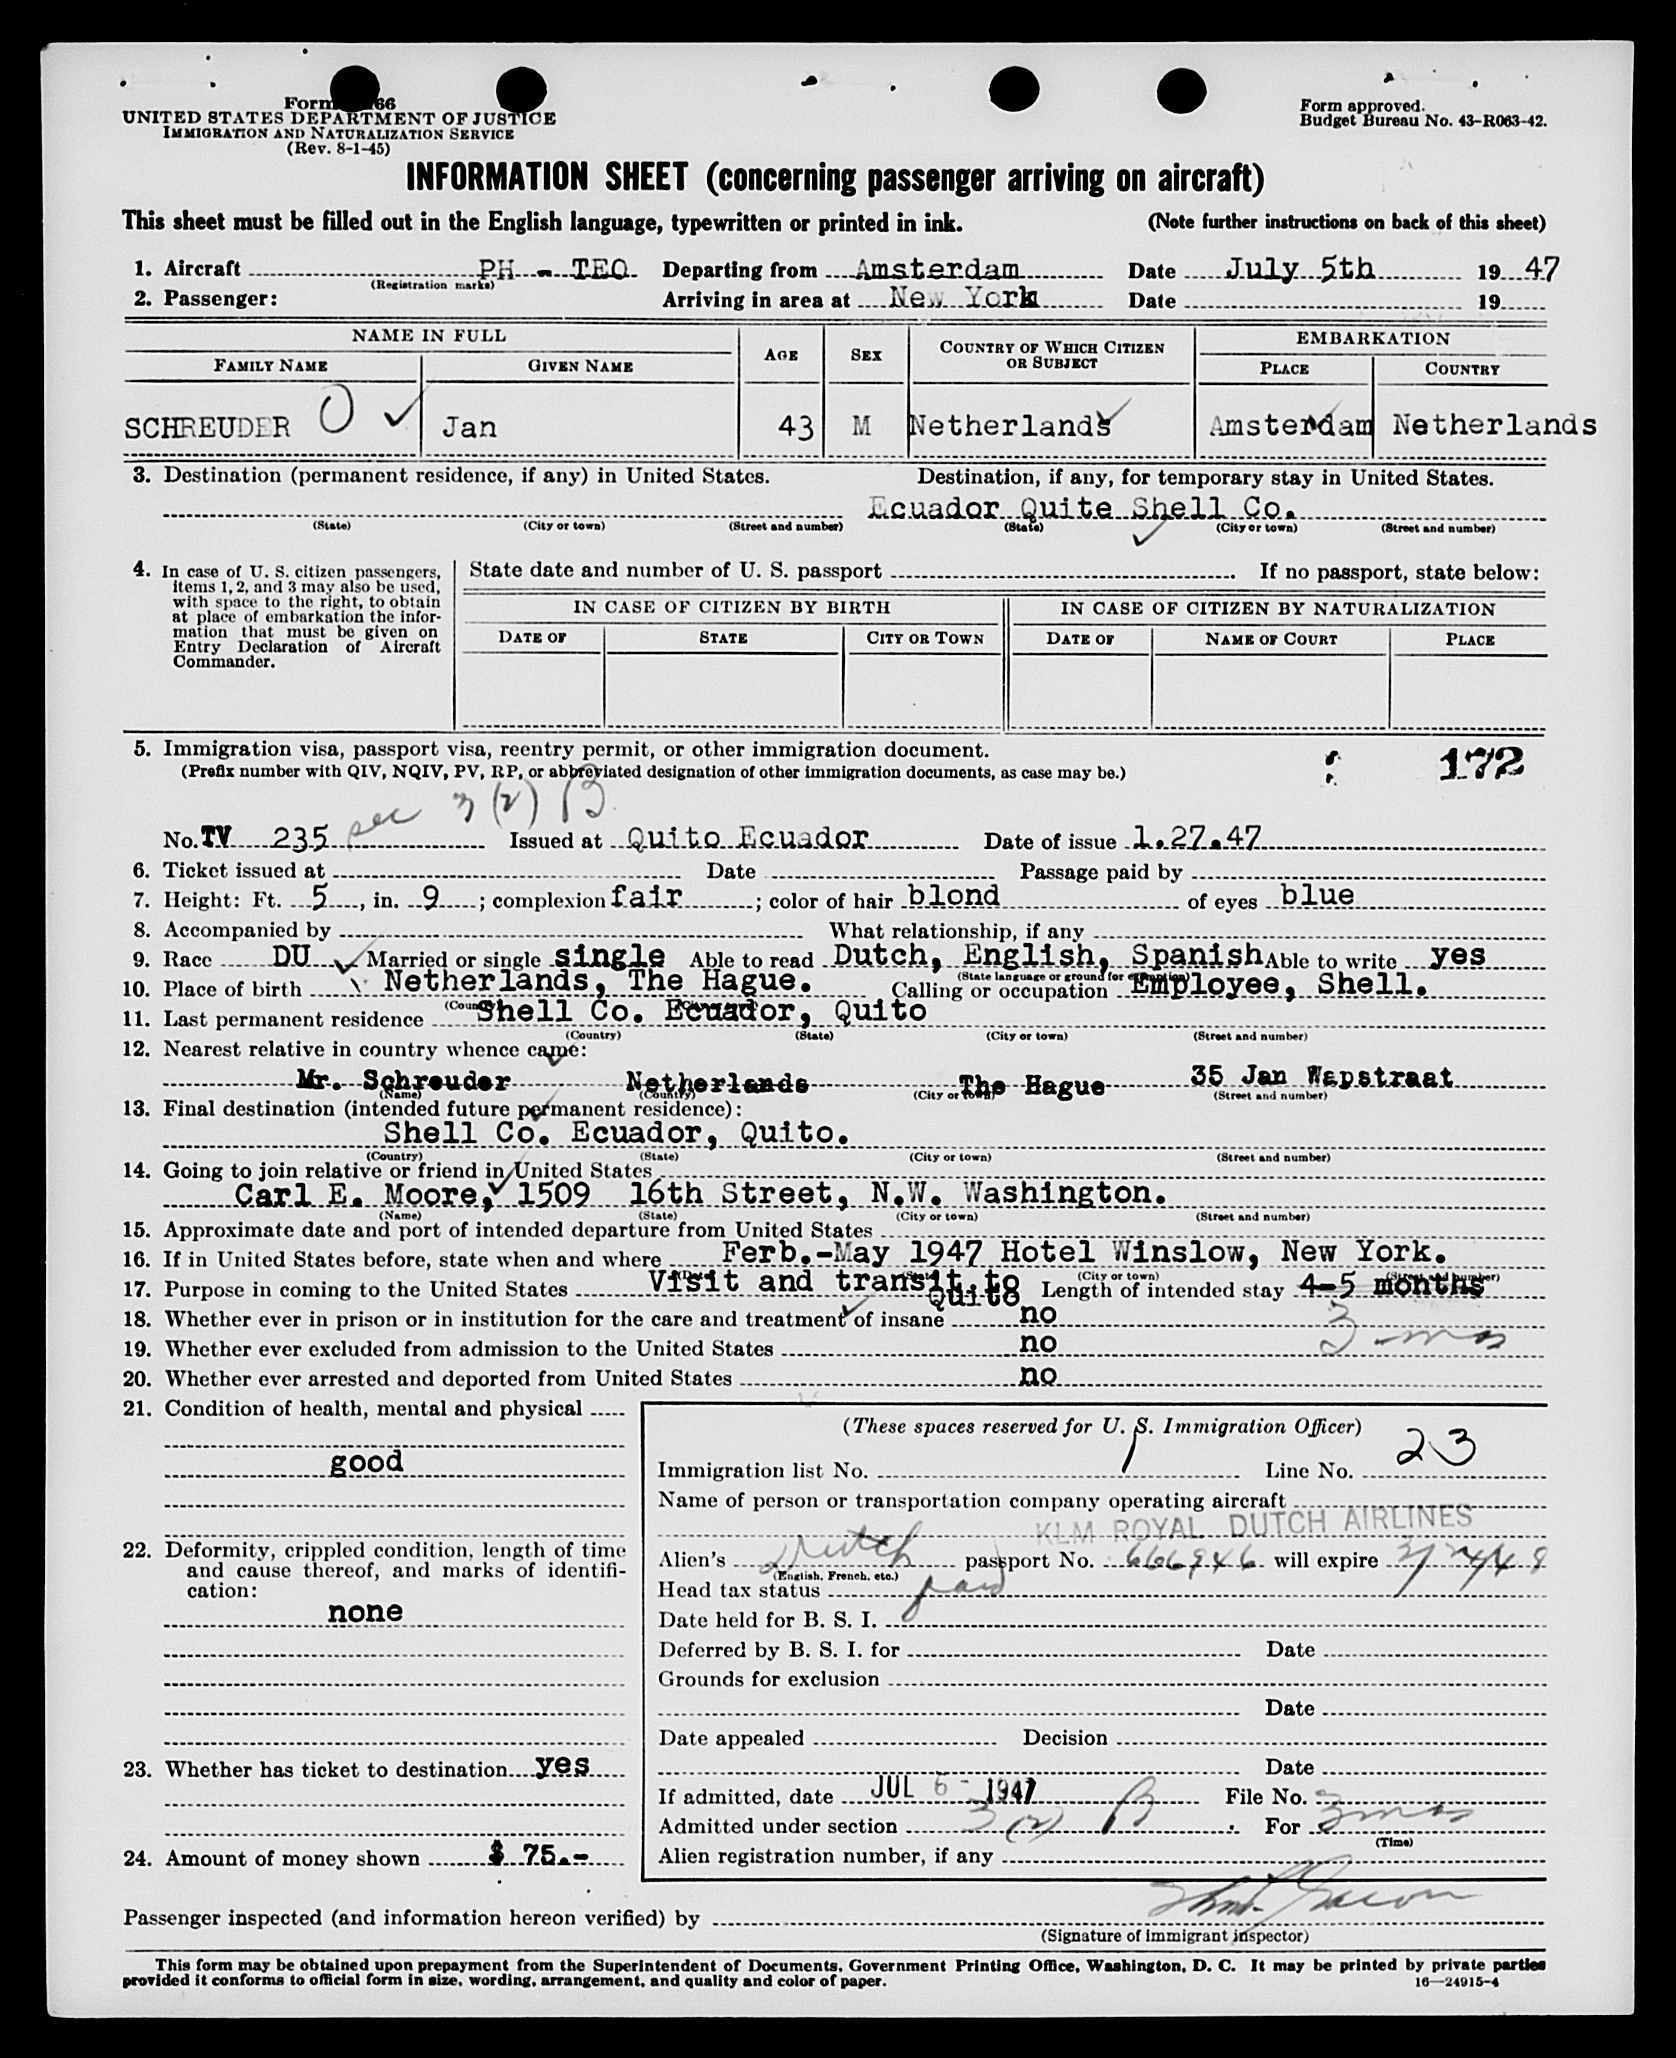 Form 66
UNITED STATES DEPARTMENT OF JUSTICE
IMMIGRATION AND NATURALIZATION SERVICE
(Rev. 8-1-45)
Form approved.
Budget Bureau No. 43-R063-42.
INFORMATION SHEET (concerning passenger arriving on aircraft)
This sheet must be filled out in the English language, typewritten or printed in ink. (Note further instructions on back of this sheet)
1. Aircraft PH - TEO Departing from Amsterdam Date July 5th 19 47
(Registration marks)
2. Passenger: Arriving in area at New York Date 19
NAME IN FULL AGE SEX COUNTRY OF WHICH CITIZEN OR SUBJECT EMBARKATION
FAMILY NAME GIVEN NAME PLACE COUNTRY
SCHREUDER Jan 43 M Netherlands Amsterdam Netherlands
3. Destination (permanent residence, if any) in United States. Destination, if any, for temporary stay in United States.
Ecuador Quite Shell Co.
(State) (City or town) (Street and number) (State) (City or town) (Street and number)
4. In case of U. S. citizen passengers, items 1, 2, and 3 may also be used, with space to the right, to obtain at place of embarkation the information that must be given on Entry Declaration of Aircraft Commander.
State date and number of U. S. passport . If no passport, state below:
IN CASE OF CITIZEN BY BIRTH IN CASE OF CITIZEN BY NATURALIZATION
DATE OF STATE CITY OR TOWN DATE OF NAME OF COURT PLACE
5. Immigration visa, passport visa, reentry permit, or other immigration document.
(Prefix number with QIV, NQIV, PV, RP, or abbreviated designation of other immigration documents, as case may be.)
172
sec 3 (2) B
No. TV 235 Issued at Quito Ecuador Date of issue 1.27.47
6. Ticket issued at Date Passage paid by
7. Height: Ft. 5, in. 9; complexion fair; color of hair blond of eyes blue
8. Accompanied by What relationship, if any
9. Race DU Married or single single Able to read Dutch, English, Spanish Able to write yes
(State language or ground for exemption)
10. Place of birth Netherlands, The Hague. Calling or occupation Employee, Shell.
11. Last permanent residence Shell Co. Ecuador, Quito
(Country) (State) (City or town) (Street and number)
12. Nearest relative in country whence came:
Mr. Schreuder Netherlands The Hague 35 Jan Wapstraat
(Name) (Country) (City or town) (Street and number)
13. Final destination (intended future permanent residence):
Shell Co. Ecuador, Quito.
(Country) (State) (City or town) (Street and number)
14. Going to join relative or friend in United States
Carl E. Moore, 1509 16th Street, N.W. Washington.
(Name) (State) (City or town) (Street and number)
15. Approximate date and port of intended departure from United States
16. If in United States before, state when and where Ferb.-May 1947 Hotel Winslow, New York.
(City or town) (Street and number)
17. Purpose in coming to the United States Visit and transit to Quito Length of intended stay 4-5 months
3 mos
18. Whether ever in prison or in institution for the care and treatment of insane no
19. Whether ever excluded from admission to the United States no
20. Whether ever arrested and deported from United States no
21. Condition of health, mental and physical
good
22. Deformity, crippled condition, length of time and cause thereof, and marks of identification:
none
23. Whether has ticket to destination yes
24. Amount of money shown $ 75.-
(These spaces reserved for U. S. Immigration Officer)
Immigration list No. 1 Line No. 23
Name of person or transportation company operating aircraft
KLM ROYAL DUTCH AIRLINES
Alien's Dutch passport No. 666946 will expire
(English, French, etc.)
Head tax status paid
Date held for B. S. I.
Deferred by B. S. I. for Date
Grounds for exclusion
Date
Date appealed Decision
Date
If admitted, date JUL 6 - 1947 File No.
Admitted under section 3 (2) B. For 3 mos
(Time)
Alien registration number, if any
Passenger inspected (and information hereon verified) by
(Signature of immigrant inspector)
This form may be obtained upon prepayment from the Superintendent of Documents, Government Printing Office, Washington, D. C. It may be printed by private parties
provided it conforms to official form in size, wording, arrangement, and quality and color of paper.
16—24915-4